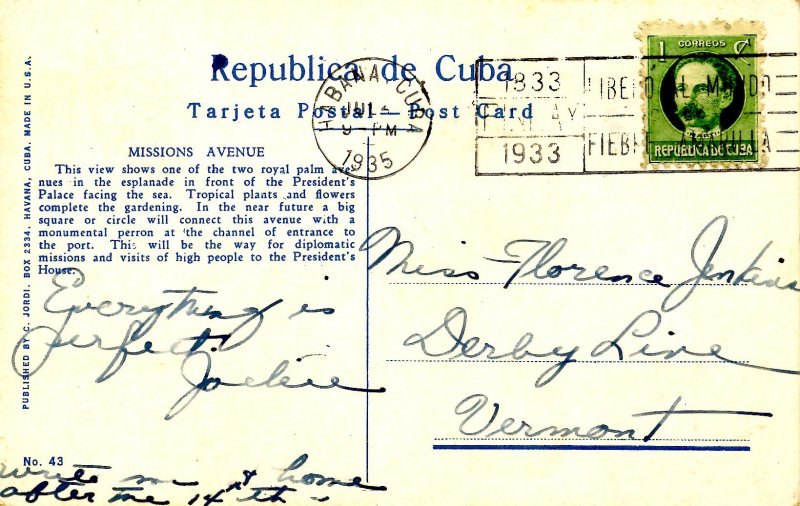 Republica de Cuba
Tarjeta Postal — Post Card
HABANA, CUBA
JUL
9 - PM
1935
1833
FINLAY
1933
LIBERO AL MUNDO
DE
FIEBRE AMARILLA
1 CORREOS ¢
REPUBLICA DE CUBA
MISSIONS AVENUE
This view shows one of the two royal palm ave-
nues in the esplanade in front of the President's
Palace facing the sea. Tropical plants and flowers
complete the gardening. In the near future a big
square or circle will connect this avenue with a
monumental perron at the channel of entrance to
the port. This will be the way for diplomatic
missions and visits of high people to the President's
House.
Everything is
perfect.
Jackie
write me at home
after the 14th -
Miss Florence Jenkins
Derby Line
Vermont
No. 43
PUBLISHED BY C. JORDI, BOX 2334, HAVANA, CUBA. MADE IN U.S.A.